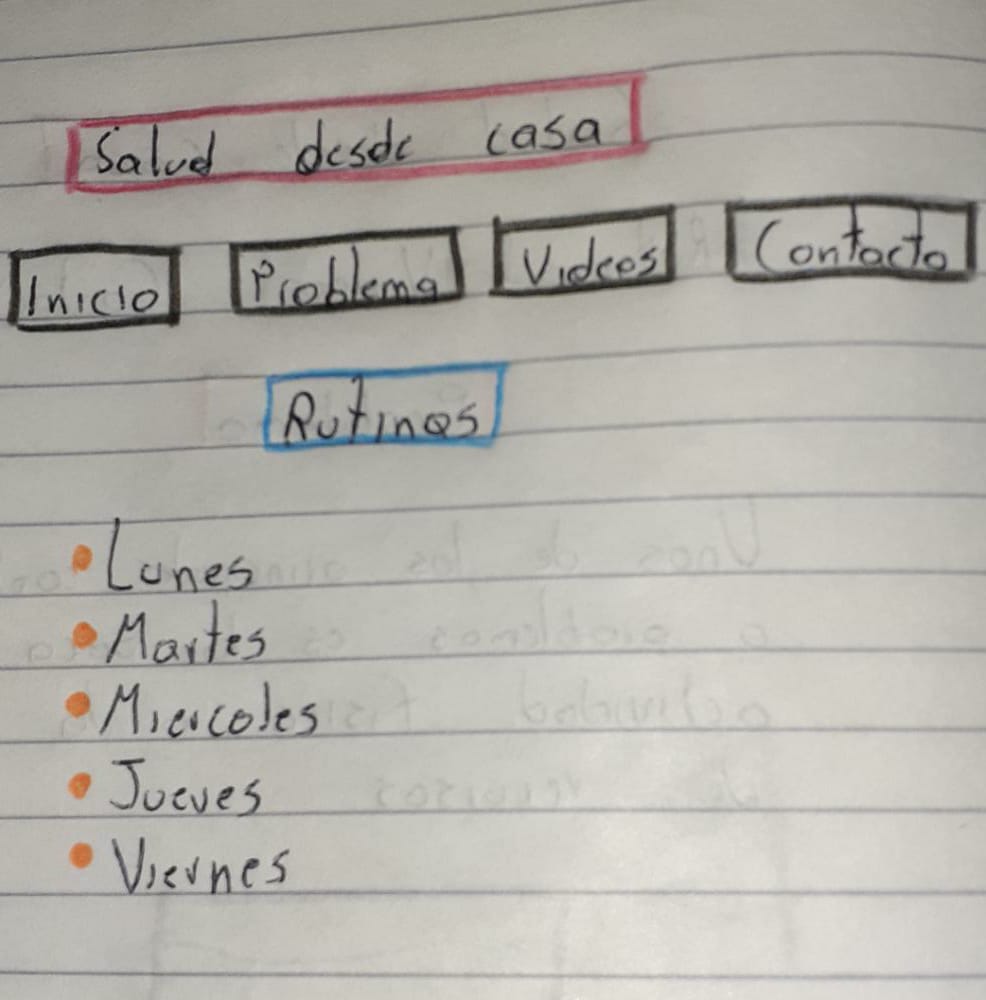 Salud desde casa
Inicio Problema Videos Contacto
Rutinas
• Lunes
• Martes
• Miercoles
• Jueves
• Viernes